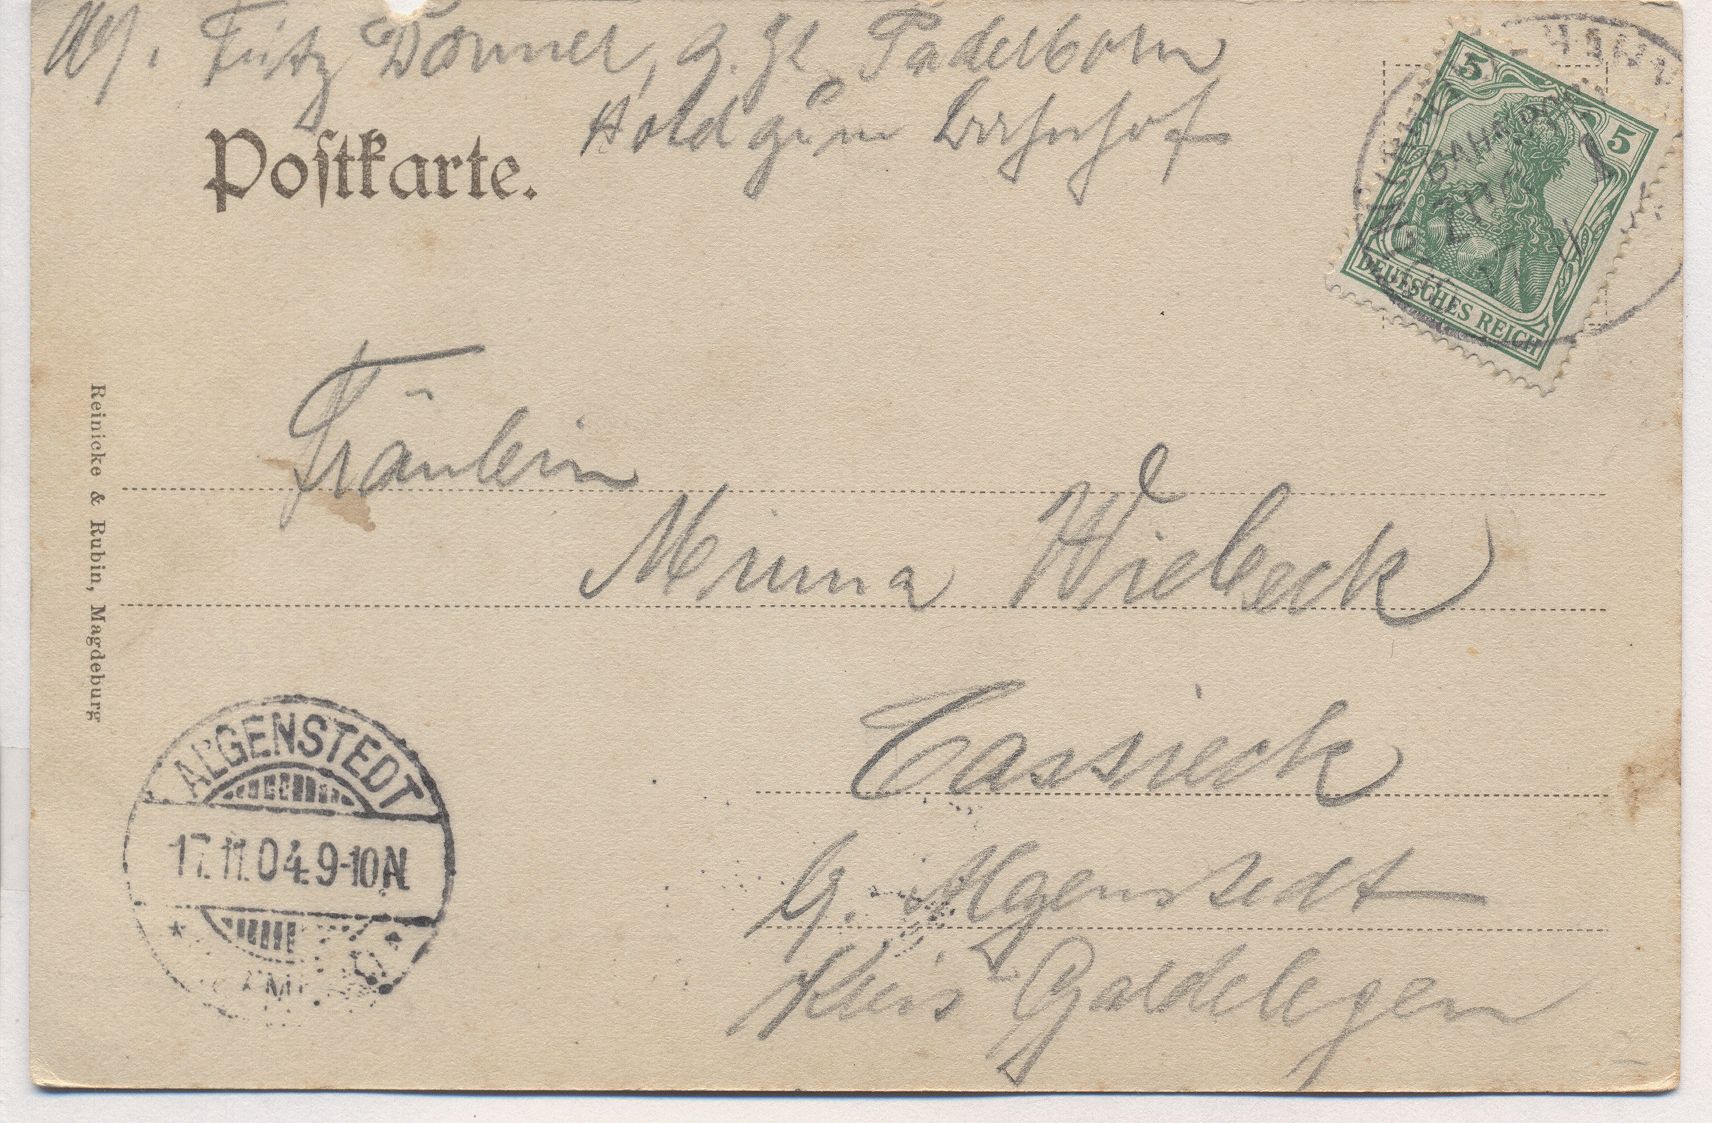 Fritz Donner, z. Zt. Paderborn
Hotel zum Bahnhof
Postkarte.
5 5
BAHNPOST
ZUG
DEUTSCHES REICH
Fräulein
Minna Wiebeck
Cassieck
b. Algenstedt
Kreis Gardelegen
Reinicke & Rubin, Magdeburg
ALGENSTEDT
17.11.04.9-10N.